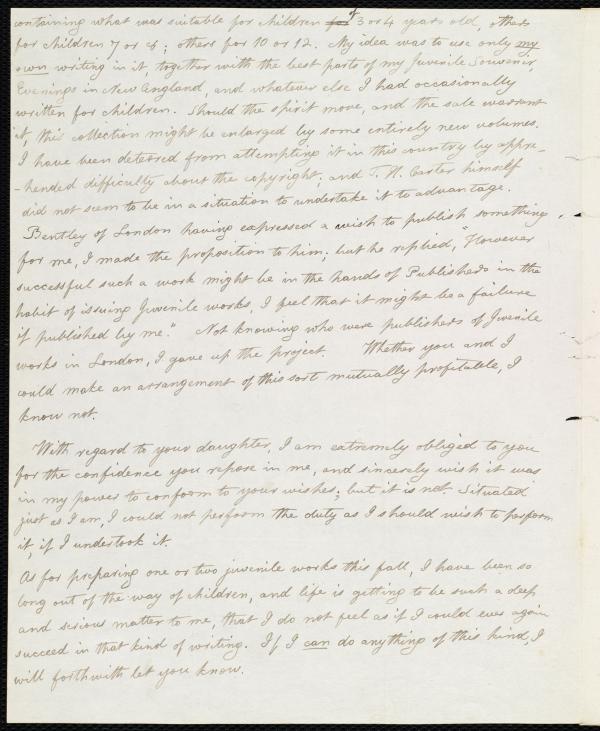 containing what was suitable for children for of 3 or 4 years old, others
for children 7 or 8; others for 10 or 12. My idea was to use only my
own writing in it, together with the best parts of my Juvenile Souvenir,
Evenings in New England, and whatever else I had occasionally
written for children. Should the spirit move, and the sale warrant
it, this collection might be enlarged by some entirely new volumes.
I have been deterred from attempting it in this country by appre-
-hended difficulty about the copyright; and T. H. Carter himself
did not seem to be in a situation to undertake it to advantage.
Bentley of London having expressed a wish to publish something
for me, I made the proposition to him; but he replied, "However
successful such a work might be in the hands of Publishers in the
habit of issuing Juvenile works, I feel that it might be a failure
if published by me." Not knowing who were publishers of Juvenile
works in London, I gave up the project. Whether you and I
could make an arrangement of this sort mutually profitable, I
know not.
With regard to your daughter, I am extremely obliged to you
for the confidence you repose in me, and sincerely wish it was
in my power to conform to your wishes; but it is not. Situated
just as I am, I could not perform the duty as I should wish to perform
it, if I undertook it.
As for preparing one or two juvenile works this fall, I have been so
long out of the way of children, and life is getting to be such a deep
and serious matter to me, that I do not feel as if I could ever again
succeed in that kind of writing. If I can do anything of this kind, I
will forthwith let you know.